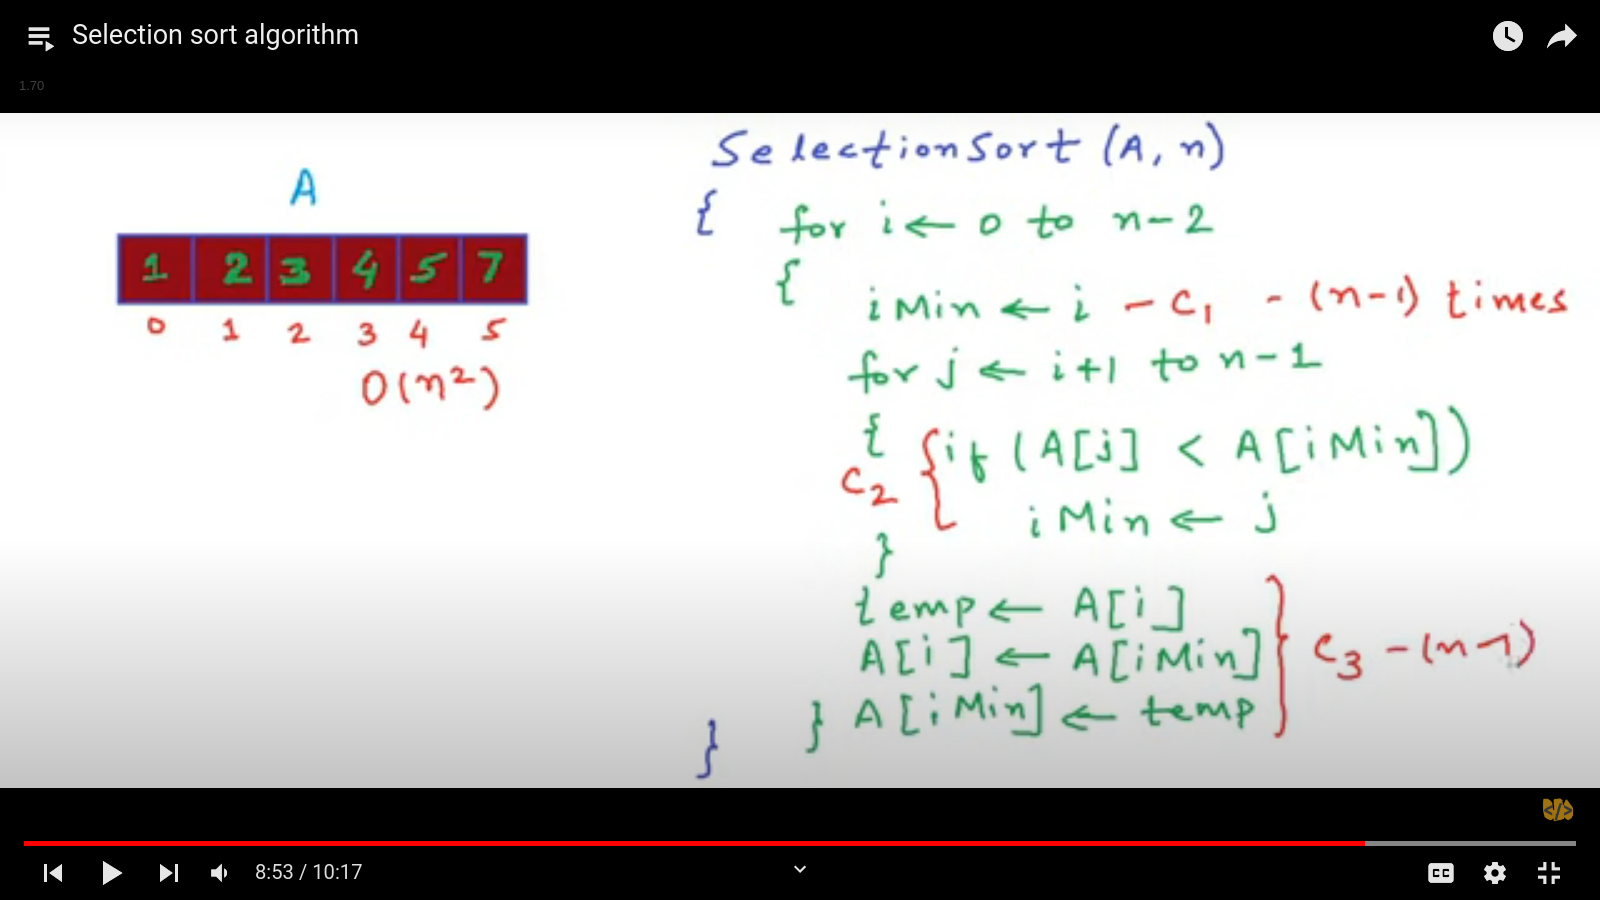 Selection sort algorithm
1.70
A
1 2 3 4 5 7
0 1 2 3 4 5
O(n²)
SelectionSort (A, n)
{ for i ← 0 to n-2
{
iMin ← i - C₁ - (n-1) times
for j ← i+1 to n-1
{ if (A[j] < A[iMin])
C₂
iMin ← j
}
temp ← A[i]
A[i] ← A[iMin] } C₃ - (n-1)
} A[iMin] ← temp
}
</>
8:53 / 10:17
CC